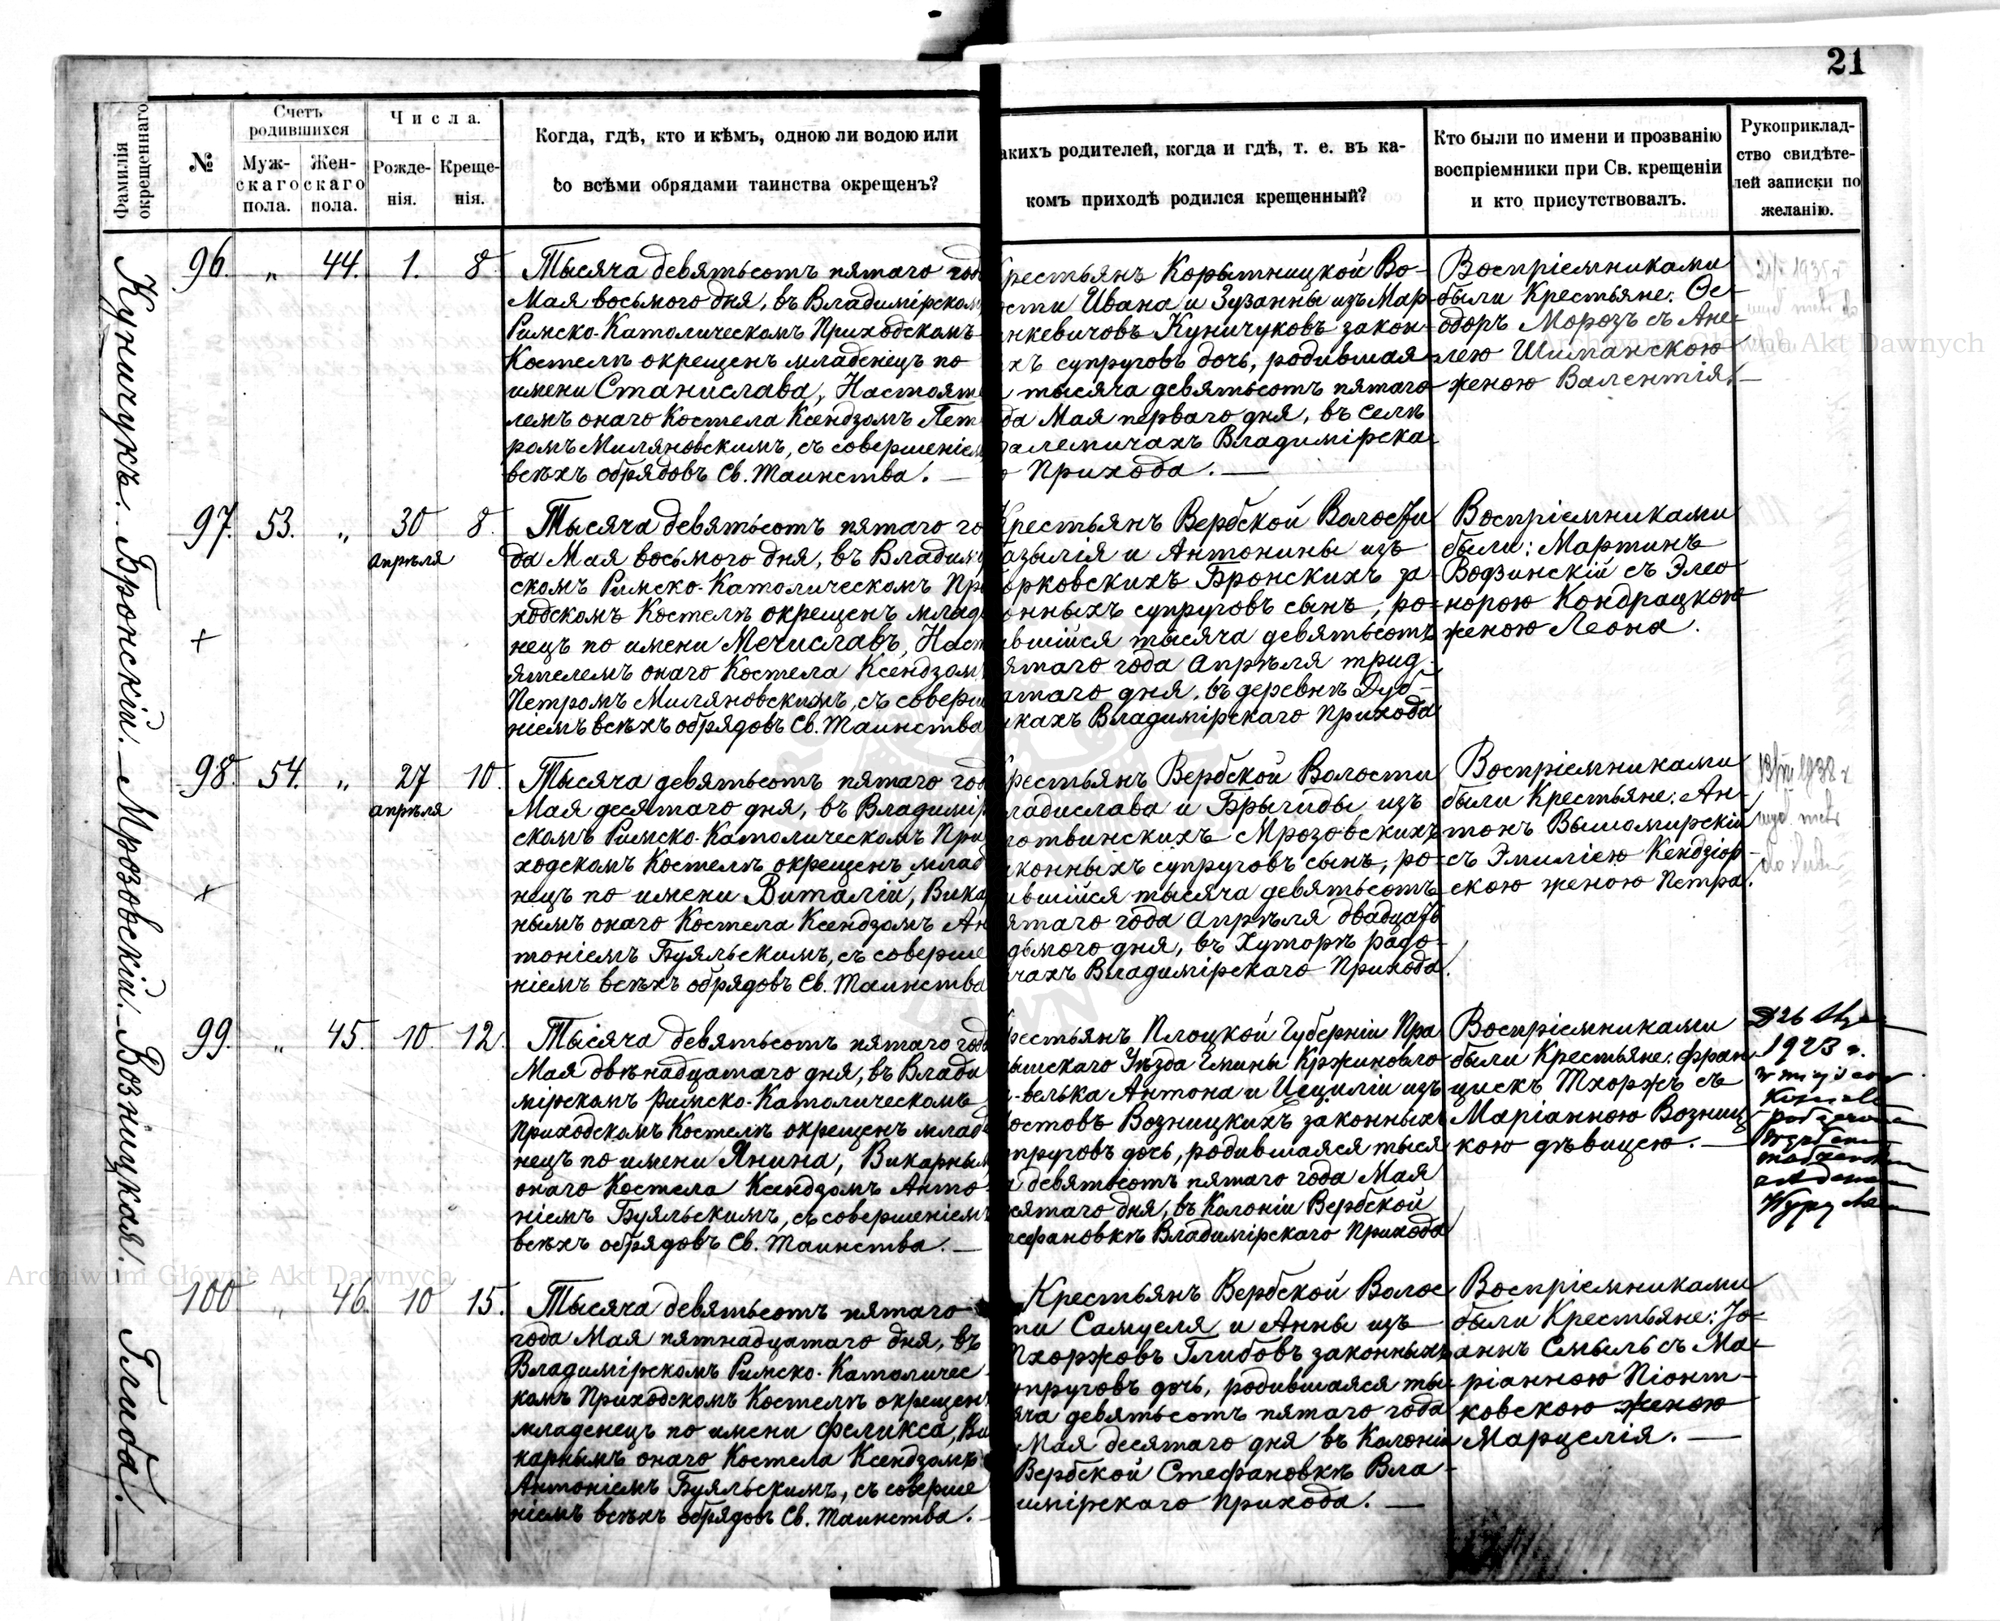 21
Фамилія окрещеннаго
№
Счетъ родившихся
Мужскаго пола.
Женскаго пола.
Числа.
Рожденія.
Крещенія.
Когда, гдѣ, кто и кѣмъ, одною ли водою или
со всѣми обрядами таинства окрещенъ?
акихъ родителей, когда и гдѣ, т. е. въ ка-
комъ приходѣ родился крещенный?
Кто были по имени и прозванію
воспріемники при Св. крещеніи
и кто присутствовалъ.
Рукоприклад-
ство свидѣте-
лей записки по
желанію.
Куничукъ.
96. " 44. 1. 8.
Тысяча девятьсотъ пятаго год
Мая восьмого дня, въ Владимірском
Римско-Католическомъ Приходскомъ
Костелѣ окрещенъ младенецъ по
имени Станислава, Настояте
лемъ онаго Костела Ксендзомъ Пет
ромъ Миляновскимъ, съ совершеніем
всѣхъ обрядовъ Св. Таинства. —
рестьянъ Корытницкой Во-
ости Ивана и Зузанны изъ Мар
нкевичовъ Куничуковъ закон-
хъ супруговъ дочь, родившая
тысяча девятьсотъ пятаго
да Мая перваго дня, въ селѣ
алемичахъ Владимірска
о Прихода. —
Воспріемниками
были Крестьяне: Ѳе-
одоръ Морозъ съ Ане-
лею Шиманскою
женою Валентія. —
Бронскій.
97. 53. " 30 апрѣля 8.
Тысяча девятьсотъ пятаго го
да Мая восьмого дня, въ Владимі
скомъ Римско-Католическомъ При
ходскомъ Костелѣ окрещенъ млад
нецъ по имени Мечиславъ, Наст
ятелемъ онаго Костела Ксендзом
Петромъ Миляновскимъ, съ соверше
ніемъ всѣхъ обрядовъ Св. Таинства
рестьянъ Вербской Волости
азылія и Антонины изъ
орковскихъ Бронскихъ за-
онныхъ супруговъ сынъ, ро-
ившійся тысяча девятьсотъ
ятаго года Апрѣля трид-
атаго дня, въ деревнѣ Дуб-
икахъ Владимірскаго Прихода
Воспріемниками
были: Мартинъ
Водзинскій съ Элео-
норою Кондрацкою
женою Леона.
+
Мрозовскій.
98. 54. " 27 апрѣля 10.
Тысяча девятьсотъ пятаго год
Мая десятаго дня, въ Владимір
скомъ Римско-Католическомъ При
ходскомъ Костелѣ окрещенъ млад
нецъ по имени Виталій, Вика
нымъ онаго Костела Ксендзомъ Ан
тоніемъ Буяльскимъ, съ соверше
ніемъ всѣхъ обрядовъ Св. Таинства
рестьянъ Вербской Волости
ладислава и Брыгиды изъ
отвинскихъ Мрозовскихъ
конныхъ супруговъ сынъ, ро-
ившійся тысяча девятьсотъ
ятаго года Апрѣля двадцать
дьмого дня, въ Хуторѣ Радо-
ичахъ Владимірскаго Прихода.
Воспріемниками
были Крестьяне: Ан-
тонъ Вышомирскій
съ Эмиліею Кендзіор-
скою женою Петра.
1938 r
+
Возніцкая.
99. " 45. 10. 12.
Тысяча девятьсотъ пятаго год
Мая двѣнадцатаго дня, въ Влади
мірскомъ Римско-Католическомъ
Приходскомъ Костелѣ окрещенъ млад
нецъ по имени Янина, Викарным
онаго Костела Ксендзомъ Анто-
ніемъ Буяльскимъ, съ совершеніем
всѣхъ обрядовъ Св. Таинства. —
рестьянъ Плоцкой Губерніи Пра
нышскаго Уѣзда Гмины Кржиновло
-велька Антона и Цециліи изъ
остовъ Возницкихъ законныхъ
упруговъ дочь, родившаяся тыся
девятьсотъ пятаго года Мая
сятаго дня, въ Колоніи Вербской
тефановкѣ Владимірскаго Прихода
Воспріемниками
были Крестьяне: Фран
цискъ Тхоржъ съ
Маріанною Возниц-
кою дѣвицею. —
1923 r.
Глиба.
100 " 46. 10 15.
Тысяча девятьсотъ пятаго
года Мая пятнадцатаго дня, въ
Владимірскомъ Римско-Католичес
комъ Приходскомъ Костелѣ окрещен
младенецъ по имени Феликса, Ви
карнымъ онаго Костела Ксендзомъ
Антоніемъ Буяльскимъ, съ соверше
ніемъ всѣхъ обрядовъ Св. Таинства. -
Крестьянъ Вербской Волос
ти Самуеля и Анны изъ
Тхоржовъ Глибовъ законныхъ
упруговъ дочь, родившаяся ты
яча девятьсотъ пятаго года
Мая десятаго дня въ Колоніи
Вербской Стефановкѣ Вла-
имірскаго Прихода. —
Воспріемниками
были Крестьяне: Іо-
аннъ Смыль съ Ма-
ріанною Піонт-
ковскою женою
Марцелія. —
Archiwum Główne Akt Dawnych
Archiwum Główne Akt Dawnych